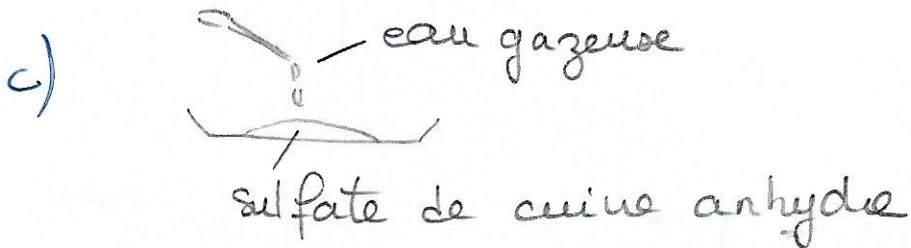 c)
eau gazeuse
sulfate de cuivre anhydre